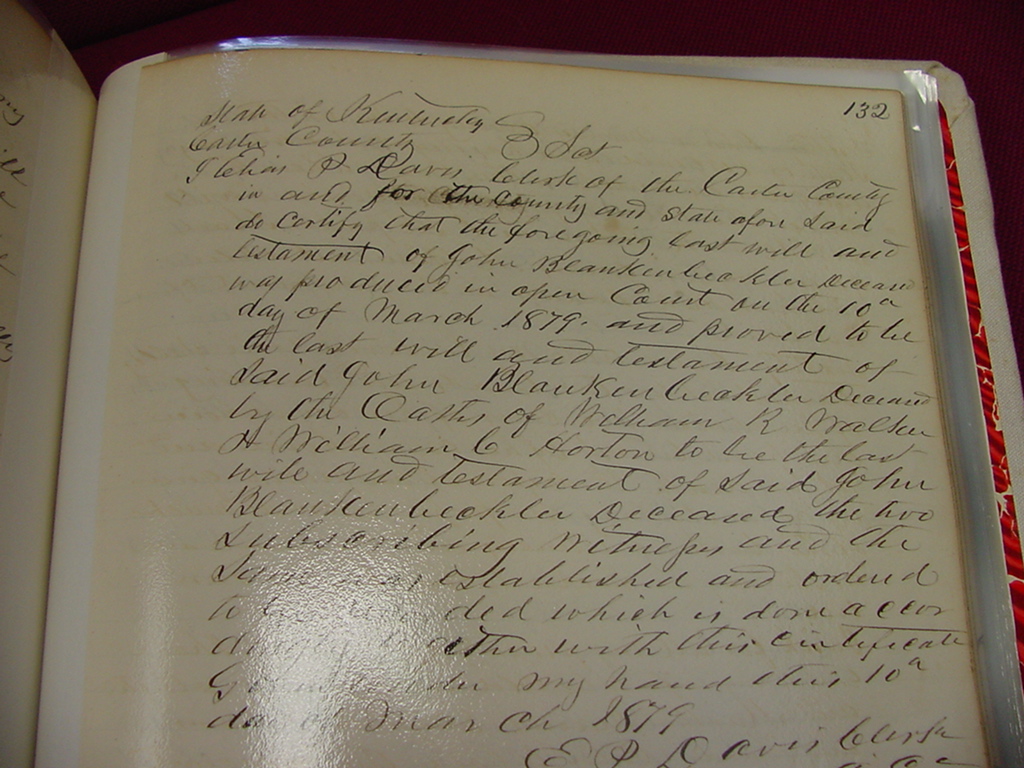 132
State of Kentucky
Carter County } Sct
I Elias P Davis Clerk of the Carter County
in and for the County and State afore Said
do certify that the foregoing last will and
testament of John Blankenbeckler Deceased
was produced in open Court on the 10th
day of March 1879. and proved to be
the last will and testament of
Said John Blankenbeckler Deceased
by the Oaths of William R Walker
& William C Horton to be the last
will and testament of Said John
Blankenbeckler Deceased the two
Subscribing Witnesses and the
Same was established and ordered
to be ded which is done accor
together with this certificate
Given under my hand this 10th
day of March 1879
E P Davis Clerk